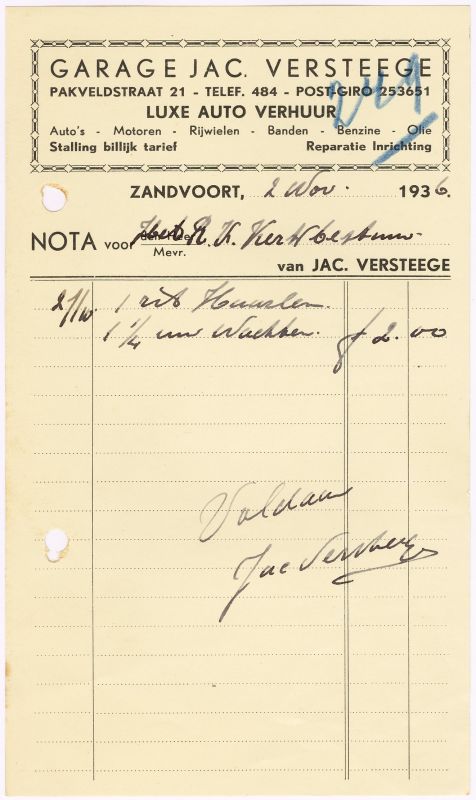 GARAGE JAC. VERSTEEGE
PAKVELDSTRAAT 21 - TELEF. 484 - POST-GIRO 253651
LUXE AUTO VERHUUR
Auto's - Motoren - Rijwielen - Banden - Benzine - Olie
Stalling billijk tarief Reparatie Inrichting
241
ZANDVOORT, 2 Nov. 1936.
NOTA voor den Heer Het R. K. Kerkbestuur
Mevr.
van JAC. VERSTEEGE
27/10 1 rit Haarlem
1 1/4 uur Wachten. f 2.00
Voldaan
Jac Versteege